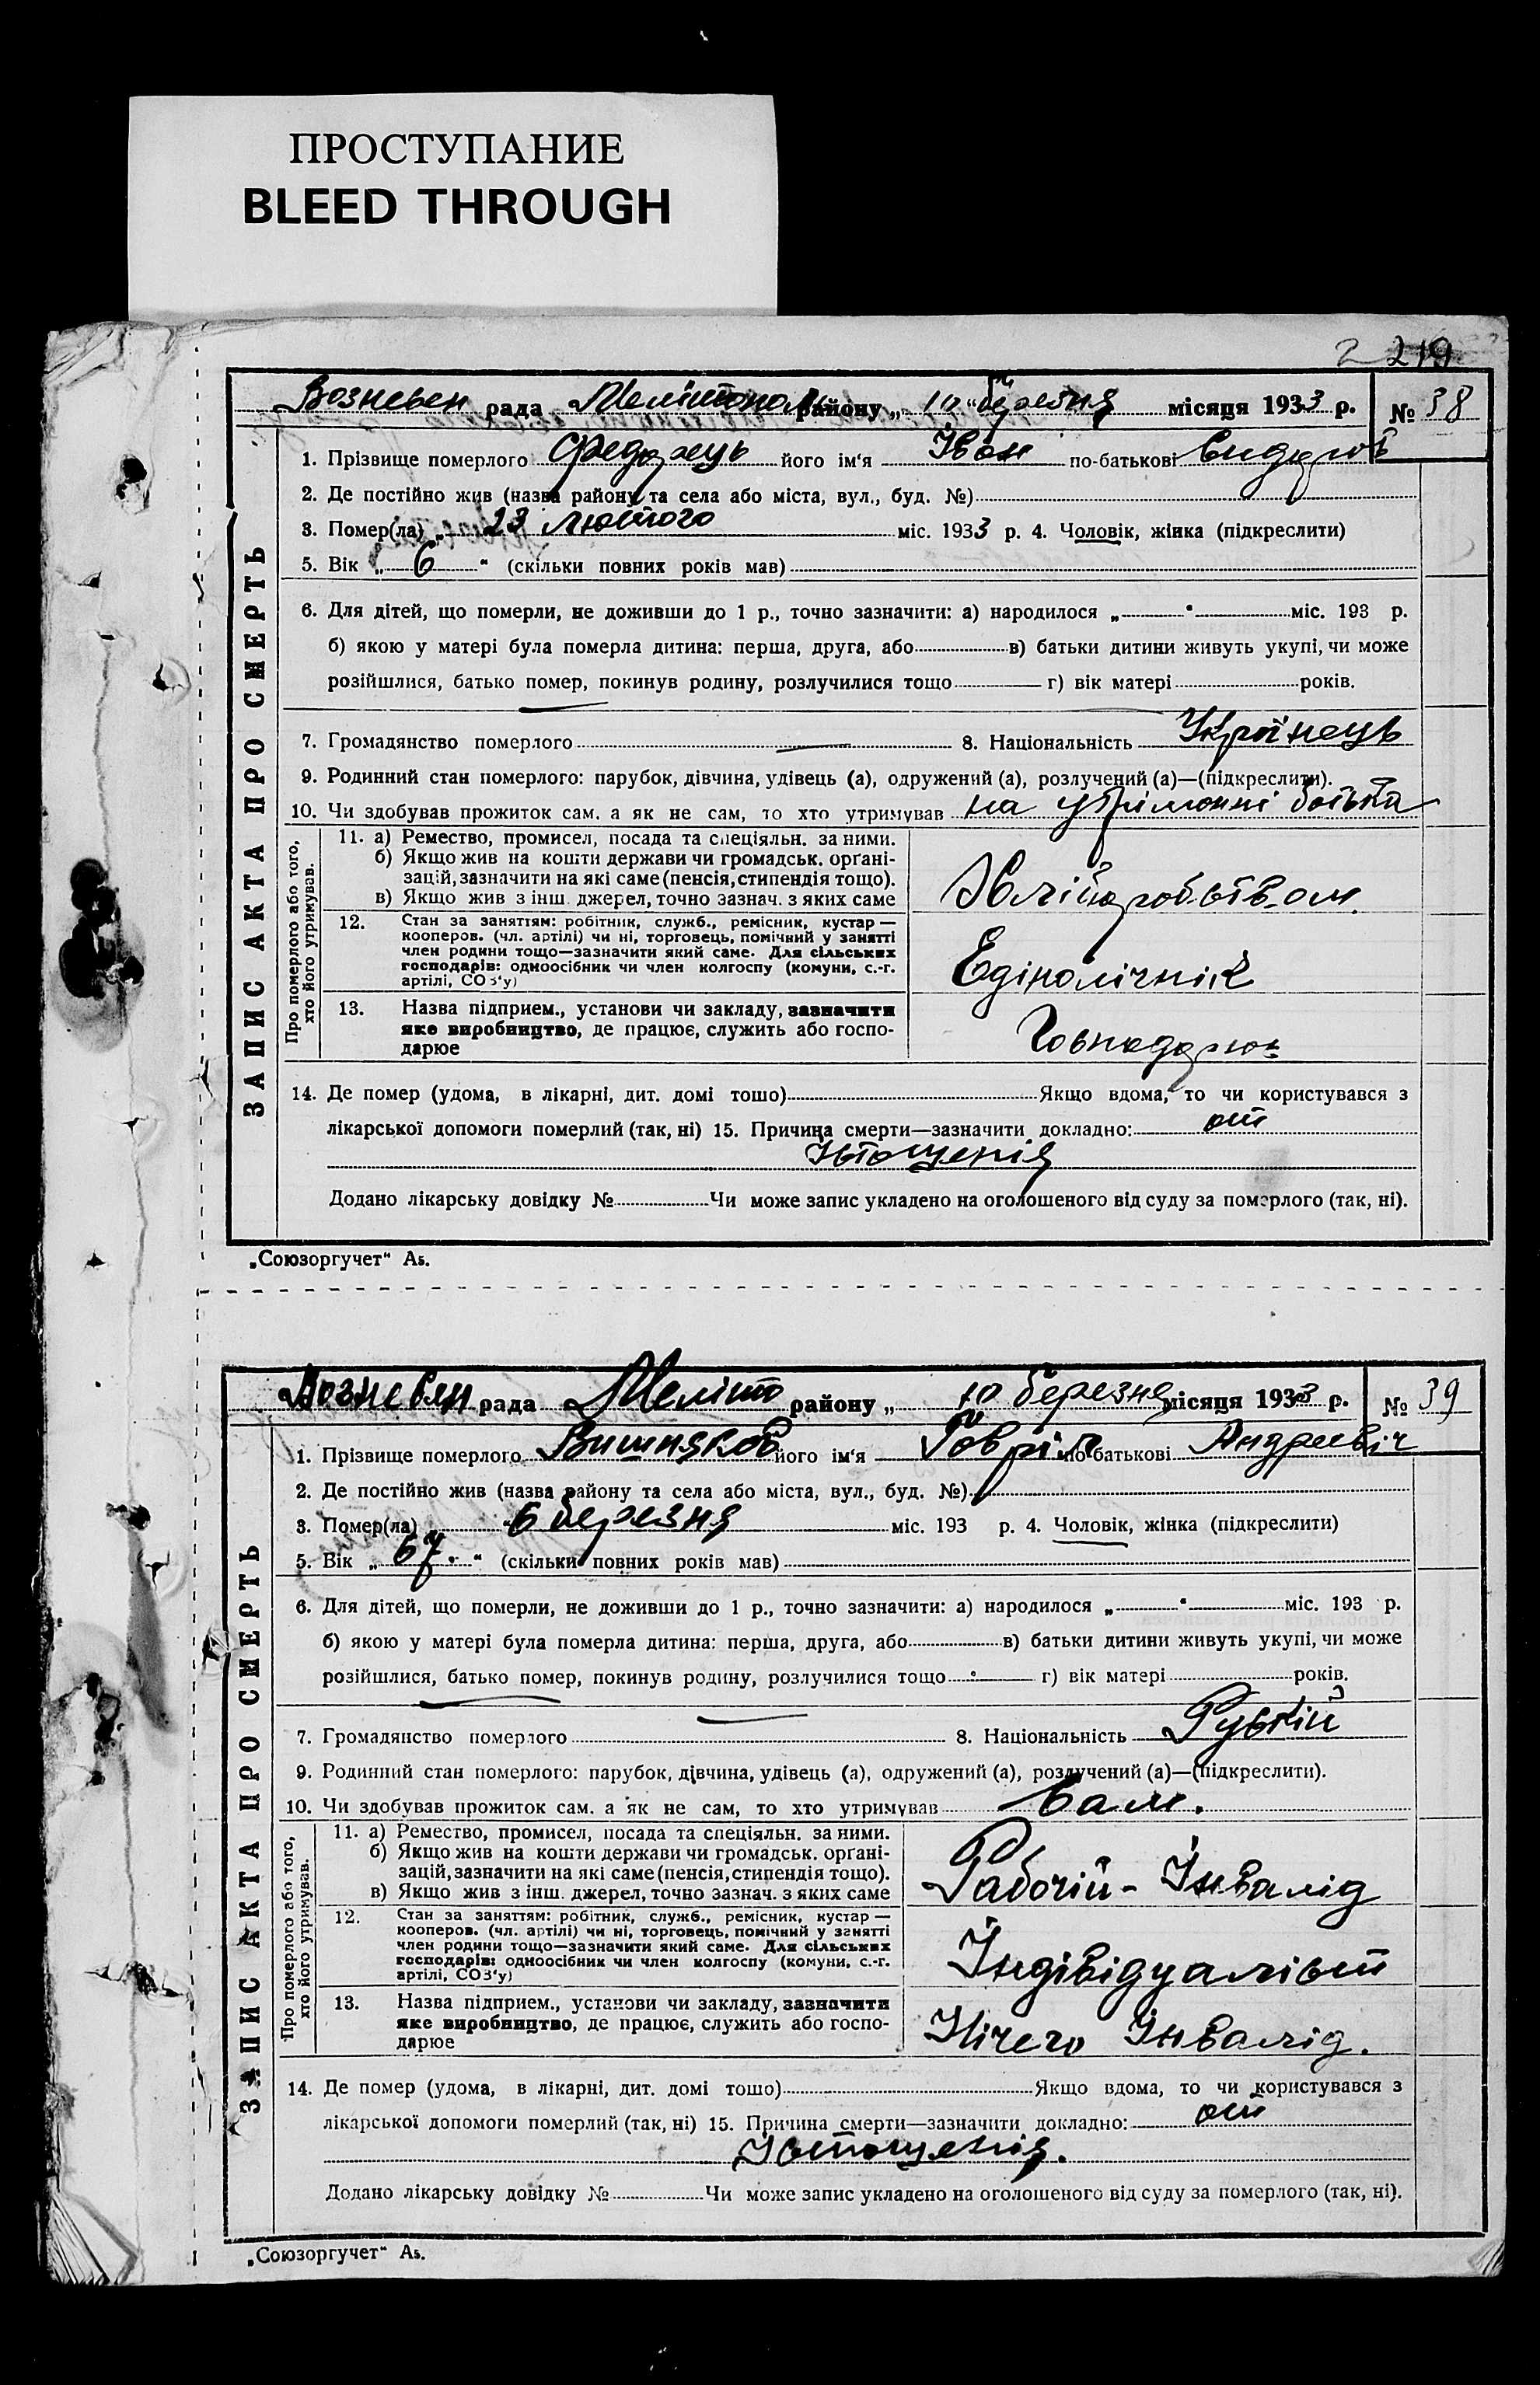 ПРОСТУПАНИЕ
BLEED THROUGH
2 219
Вознесен рада Мелітополь району „ 10 “ березня місяця 1933 р. № 38
1. Прізвище померлого Федорець його ім‘я Іван по-батькові Сидоров
2. Де постійно жив (назва району та села або міста, вул., буд. №)
3. Помер(ла) „ 23 лютого міс. 1933 р. 4. Чоловік, жінка (підкреслити)
5. Вік „ 6 “ (скільки повних років мав)
6. Для дітей, що померли, не доживши до 1 р., точно зазначити: а) народилося „ “ міс. 193 р.
б) якою у матері була померла дитина: перша, друга, або в) батьки дитини живуть укупі, чи може
розійшлися, батько помер, покинув родину, розлучилися тощо г) вік матері років.
7. Громадянство померлого 8. Національність Українець
9. Родинний стан померлого: парубок, дівчина, удівець (а), одружений (а), розлучений (а)—(підкреслити).
10. Чи здобував прожиток сам, а як не сам, то хто утримував на утріманні батька
ЗАПИС АКТА ПРО СМЕРТЬ
Про померлого або того,
хто його утримував.
11. а) Ремество, промисел, посада та спеціяльн. за ними.
б) Якщо жив на кошти держави чи громадськ. орґані-
зацій, зазначити на які саме (пенсія, стипендія тощо).
в) Якщо жив з інш. джерел, точно зазнач. з яких саме
Хлiборобством
12. Стан за заняттям: робітник, служб., ремісник, кустар —
кооперов. (чл. артілі) чи ні, торговець, помічний у занятті
член родини тощо—зазначити який саме. Для сільських
господарів: одноосібник чи член колгоспу (комуни, с.-г.
артілі, СОЗ‘у)
Едіналічнік
13. Назва підприєм., установи чи закладу, зазначити
яке виробництво, де працює, служить або госпо-
дарює
Господарює
14. Де помер (удома, в лікарні, дит. домі тощо) Якщо вдома, то чи користувався з
лікарської допомоги померлий (так, ні) 15. Причина смерти—зазначити докладно: от
Істощенія
Додано лікарську довідку № Чи може запис укладено на оголошеного від суду за померлого (так, ні).
„Союзоргучет“ А5.
Вознесен рада Меліто району „ 10 березня місяця 1933 р. № 39
1. Прізвище померлого Вишняков його ім‘я Гавріїл по-батькові Андреевіч
2. Де постійно жив (назва району та села або міста, вул., буд. №)
3. Помер(ла) „ 6 березня міс. 193 р. 4. Чоловік, жінка (підкреслити)
5. Вік „ 67. “ (скільки повних років мав)
6. Для дітей, що померли, не доживши до 1 р., точно зазначити: а) народилося „ “ міс. 193 р.
б) якою у матері була померла дитина: перша, друга, або в) батьки дитини живуть укупі, чи може
розійшлися, батько помер, покинув родину, розлучилися тощо г) вік матері років.
7. Громадянство померлого 8. Національність Руській
9. Родинний стан померлого: парубок, дівчина, удівець (а), одружений (а), розлучений (а)—(підкреслити).
10. Чи здобував прожиток сам, а як не сам, то хто утримував Сам.
ЗАПИС АКТА ПРО СМЕРТЬ
Про померлого або того,
хто його утримував.
11. а) Ремество, промисел, посада та спеціяльн. за ними.
б) Якщо жив на кошти держави чи громадськ. орґані-
зацій, зазначити на які саме (пенсія, стипендія тощо).
в) Якщо жив з інш. джерел, точно зазнач. з яких саме
Рабочій - Інвалід
12. Стан за заняттям: робітник, служб., ремісник, кустар —
кооперов. (чл. артілі) чи ні, торговець, помічний у занятті
член родини тощо—зазначити який саме. Для сільських
господарів: одноосібник чи член колгоспу (комуни, с.-г.
артілі, СОЗ‘у)
Індівідуаліст
13. Назва підприєм., установи чи закладу, зазначити
яке виробництво, де працює, служить або госпо-
дарює
Нічего Інвалід.
14. Де помер (удома, в лікарні, дит. домі тощо) Якщо вдома, то чи користувався з
лікарської допомоги померлий (так, ні) 15. Причина смерти—зазначити докладно: от
Істощенія.
Додано лікарську довідку № Чи може запис укладено на оголошеного від суду за померлого (так, ні).
„Союзоргучет“ А5.